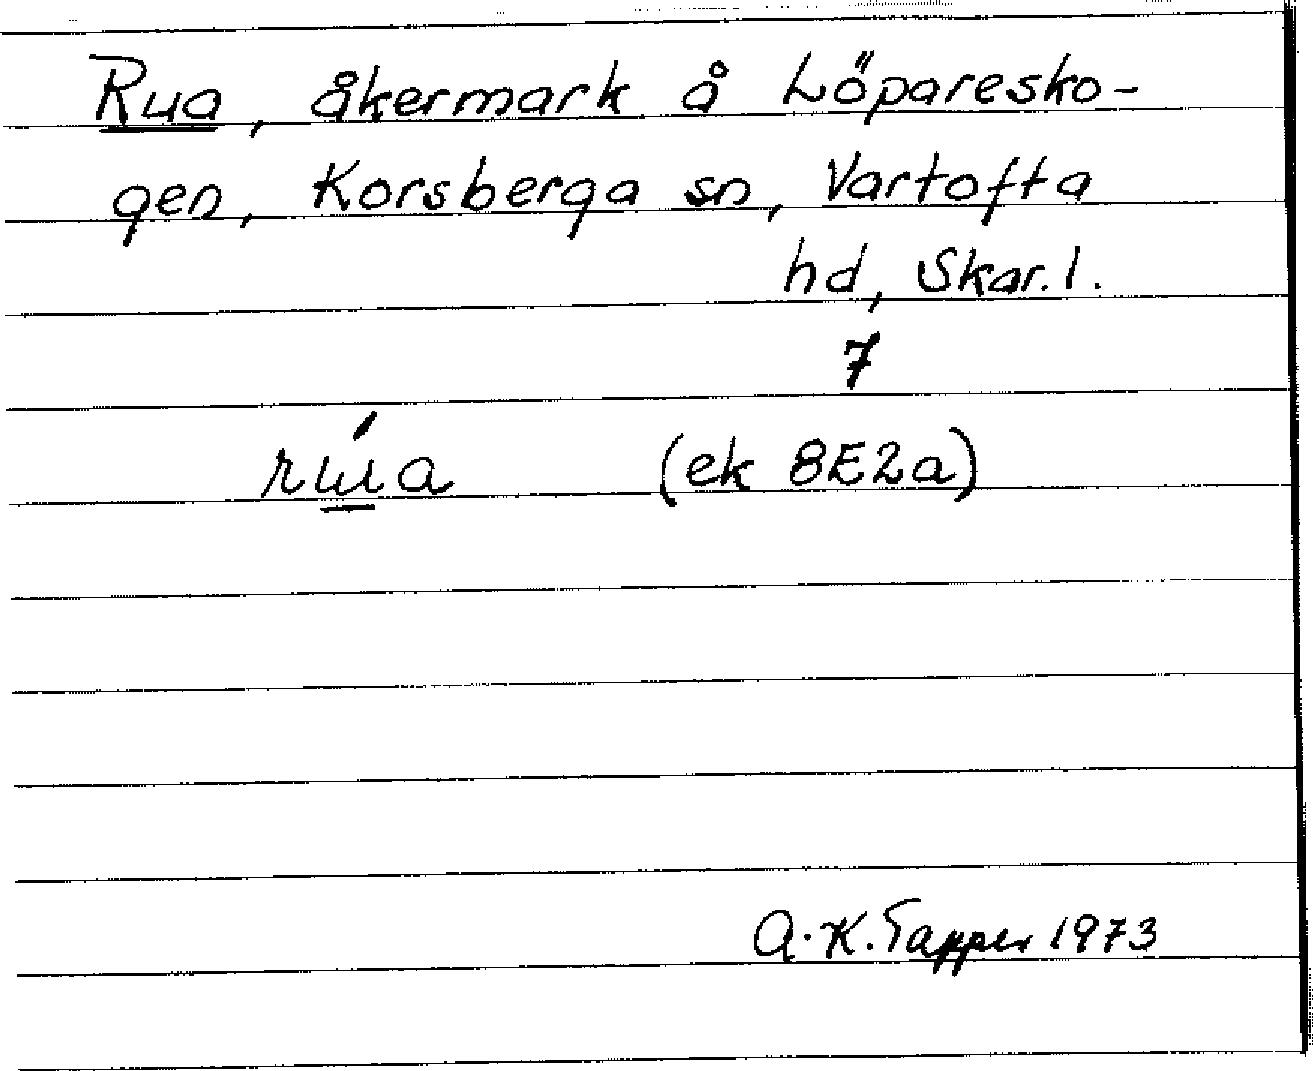 Rua, åkermark å Löparesko-
gen, Korsberga sn, Vartofta
hd, Skar. l.
7
(ek 8E2a)
A.K. Tapper 1973